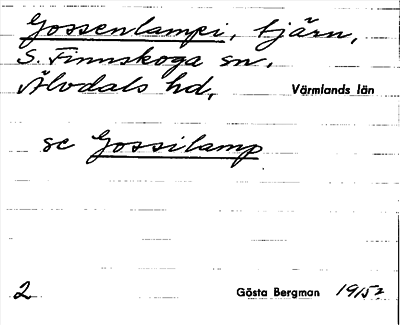 Gossenlampi, tjärn,
S. Finnskoga sn,
Älvdals hd, Värmlands län
se Gossilamp
2 Gösta Bergman 1915